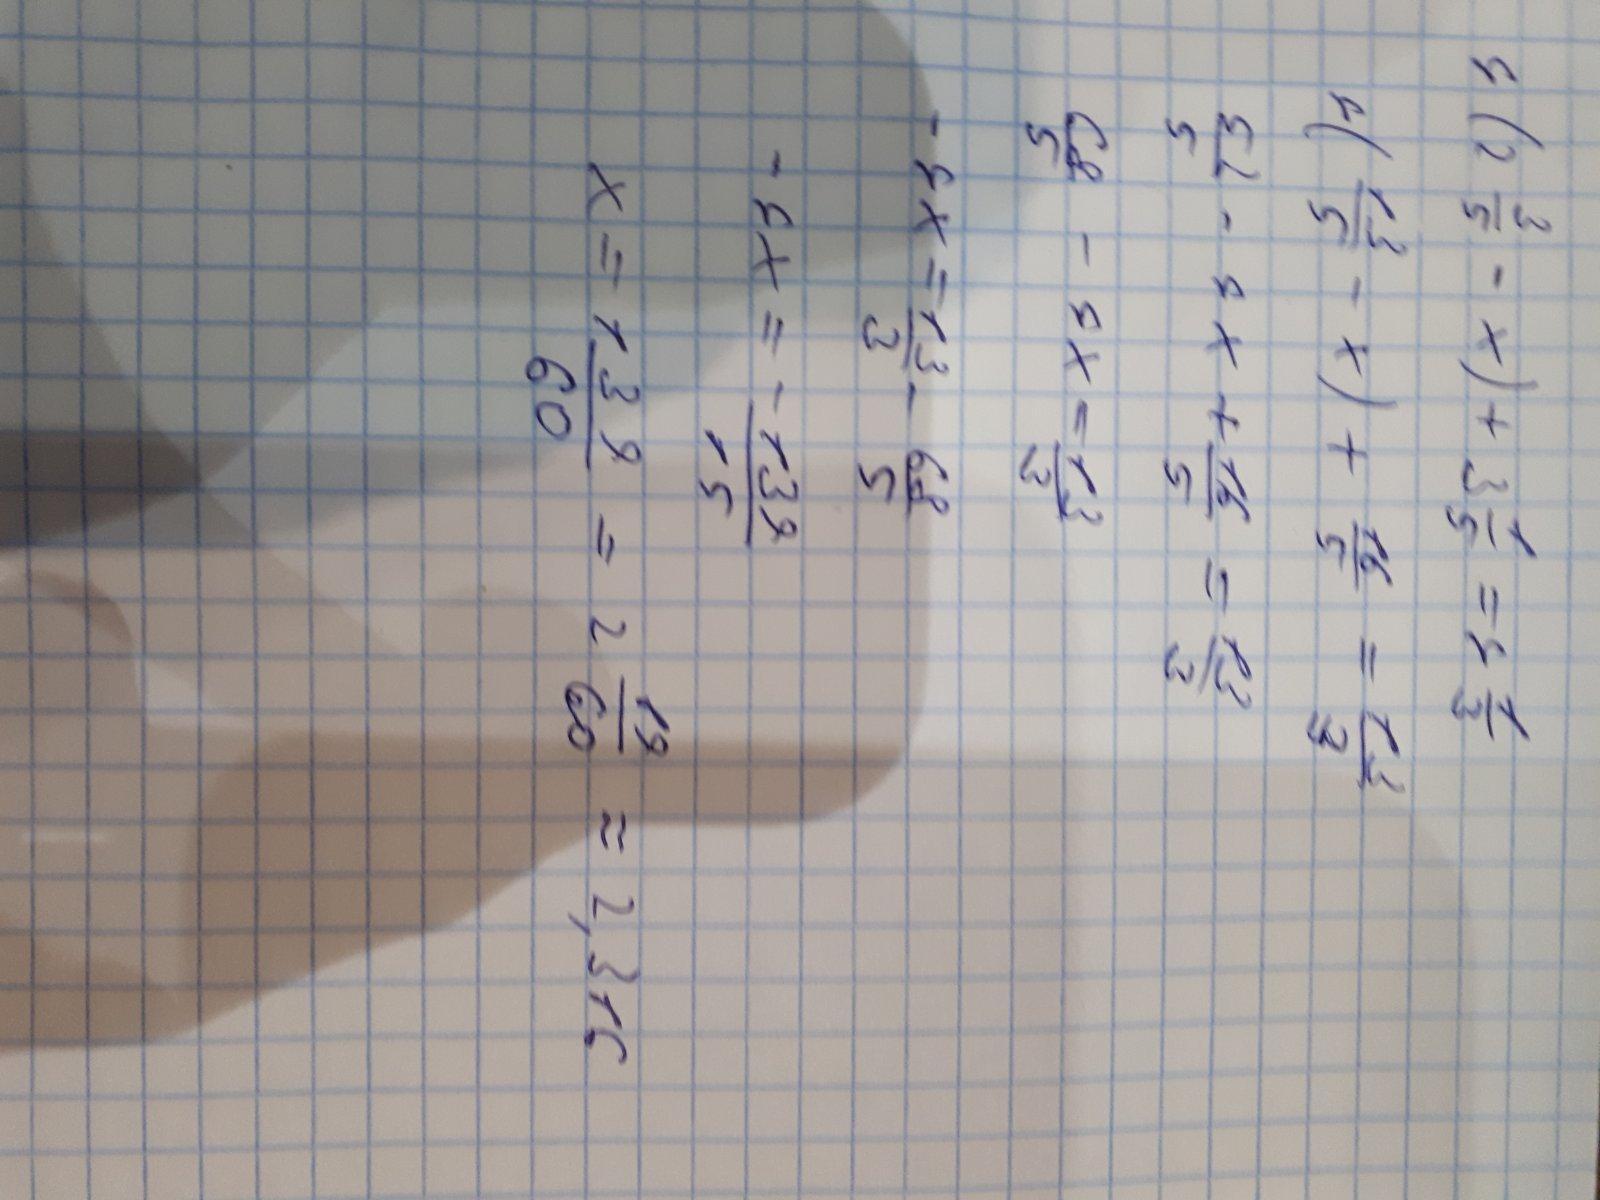 4(2 3/5 - x) + 3 1/5 = 4 1/3
4(13/5 - x) + 16/5 = 13/3
52/5 - 4x + 16/5 = 13/3
68/5 - 4x = 13/3
-4x = 13/3 - 68/5
-4x = -139/15
x = 139/60 = 2 19/60 ≈ 2,316